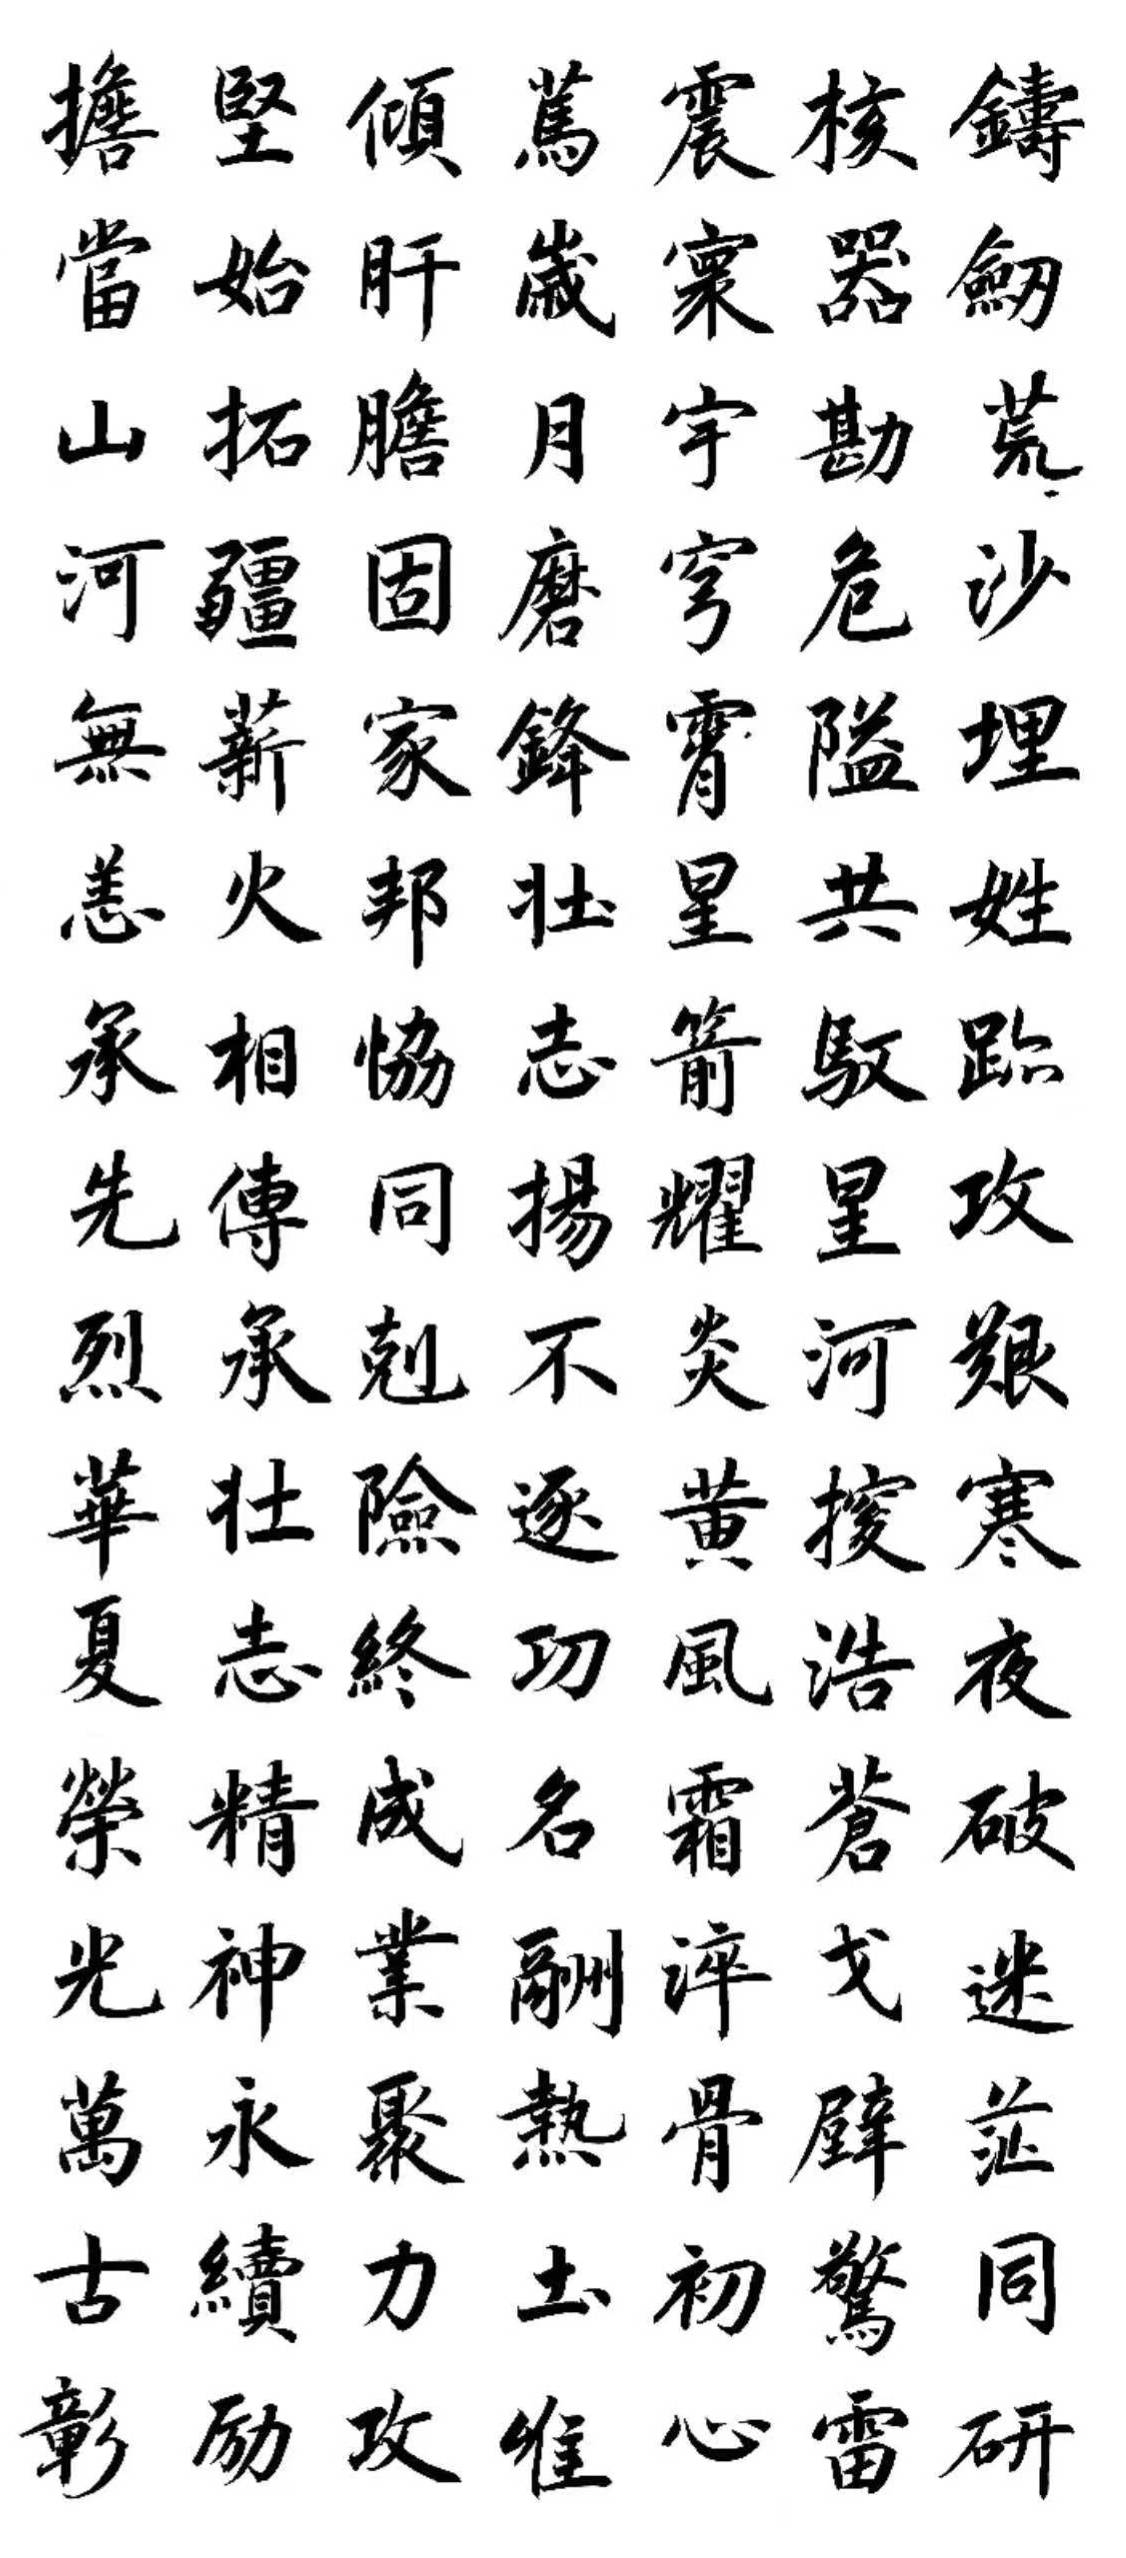 鑄劒荒沙埋姓跡攻艱寒夜破迷茫同研
核器勘危隘共馭星河授浩蒼戈壁驚雷
震寰宇穹霄星箭耀炎黃風霜淬骨初心
篤歲月磨鋒壯志揚不逐功名酬熱土惟
傾肝膽固家邦恊同剋險終成業聚力攻
堅始拓疆薪火相傳承壯志精神永續励
擔當山河無恙承先烈華夏榮光萬古彰